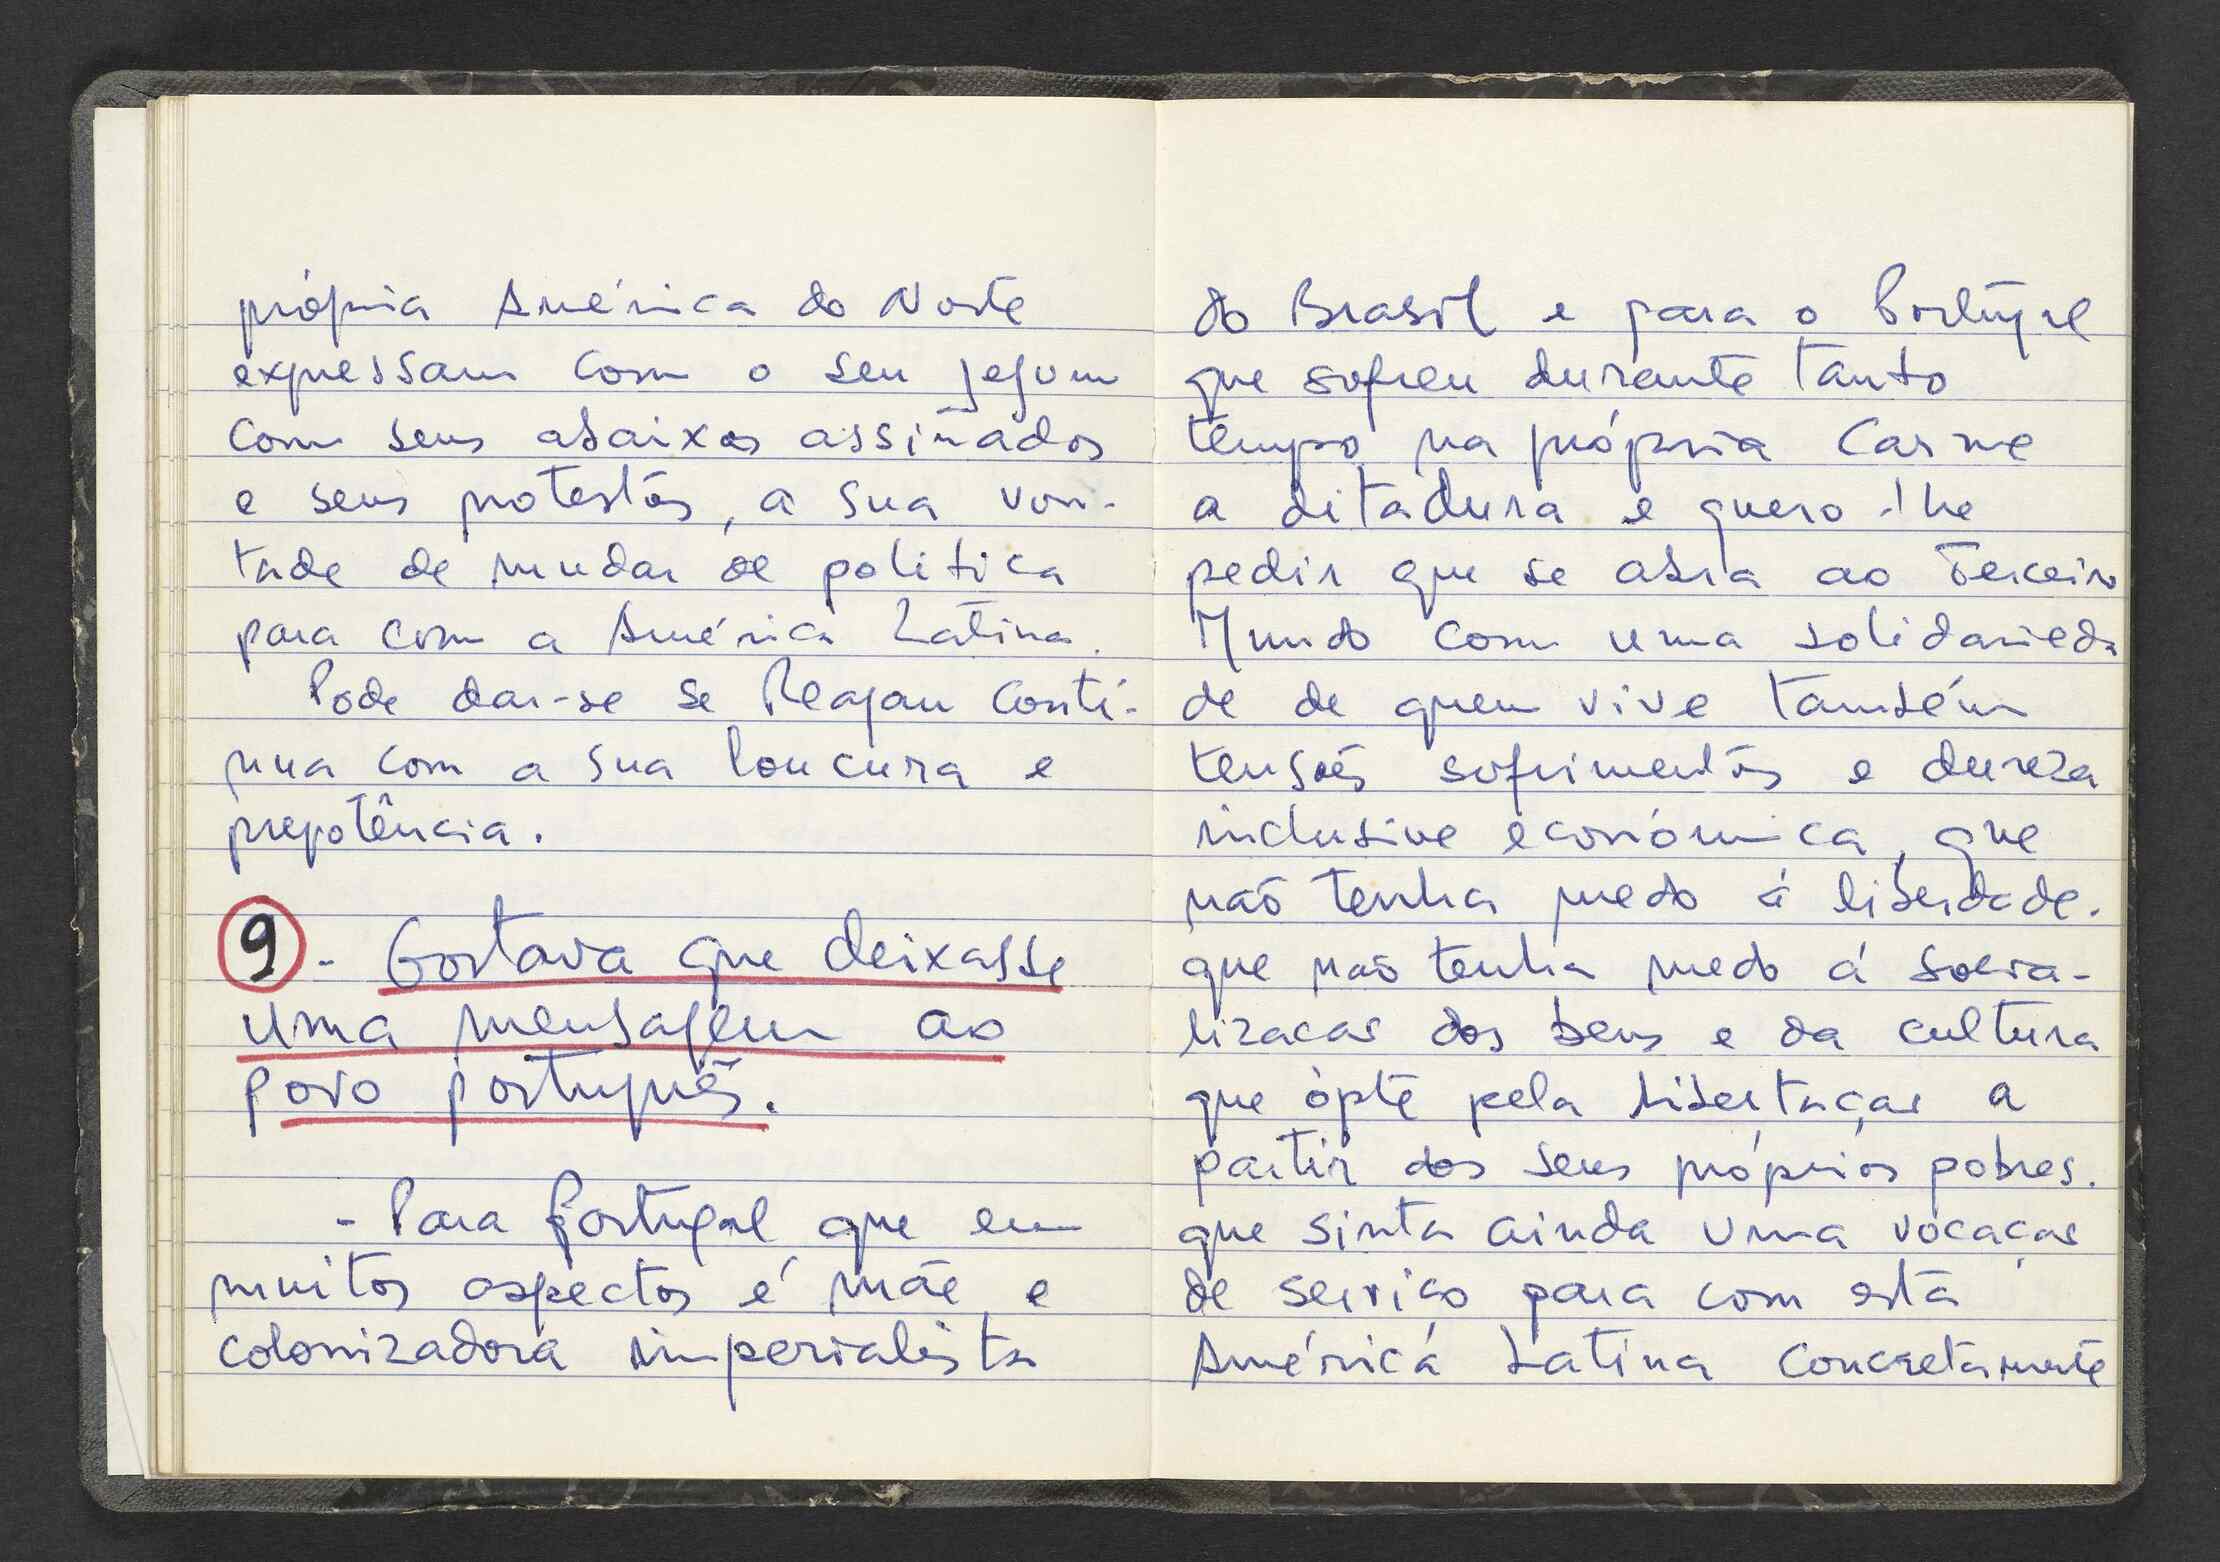 própria América do Norte
expressam com o seu jejum
com seus abaixos assinados
e seus protestos, a sua von-
tade de mudar de politica
para com a América Latina.
Pode dar-se se Reagan conti-
nua com a sua loucura e
prepotência.
9 - Gostava que deixasse
uma mensagem ao
povo português.
- Para Portugal que em
muitos aspectos é mãe e
colonizadora imperialista
do Brasil e para o Portugal
que sofreu durante tanto
tempo na própria carne
a ditadura e quero-lhe
pedir que se abra ao Terceiro
Mundo com uma solidarieda
de de quem vive também
tensões sofrimentos e dureza
inclusive económica, que
não tenha medo á liberdade.
que não tenha medo á socia-
lizacao dos bens e da cultura
que opte pela libertaçao a
partir dos seus próprios pobres.
que sinta ainda uma vocaçao
de serviço para com esta
América Latina concretamente